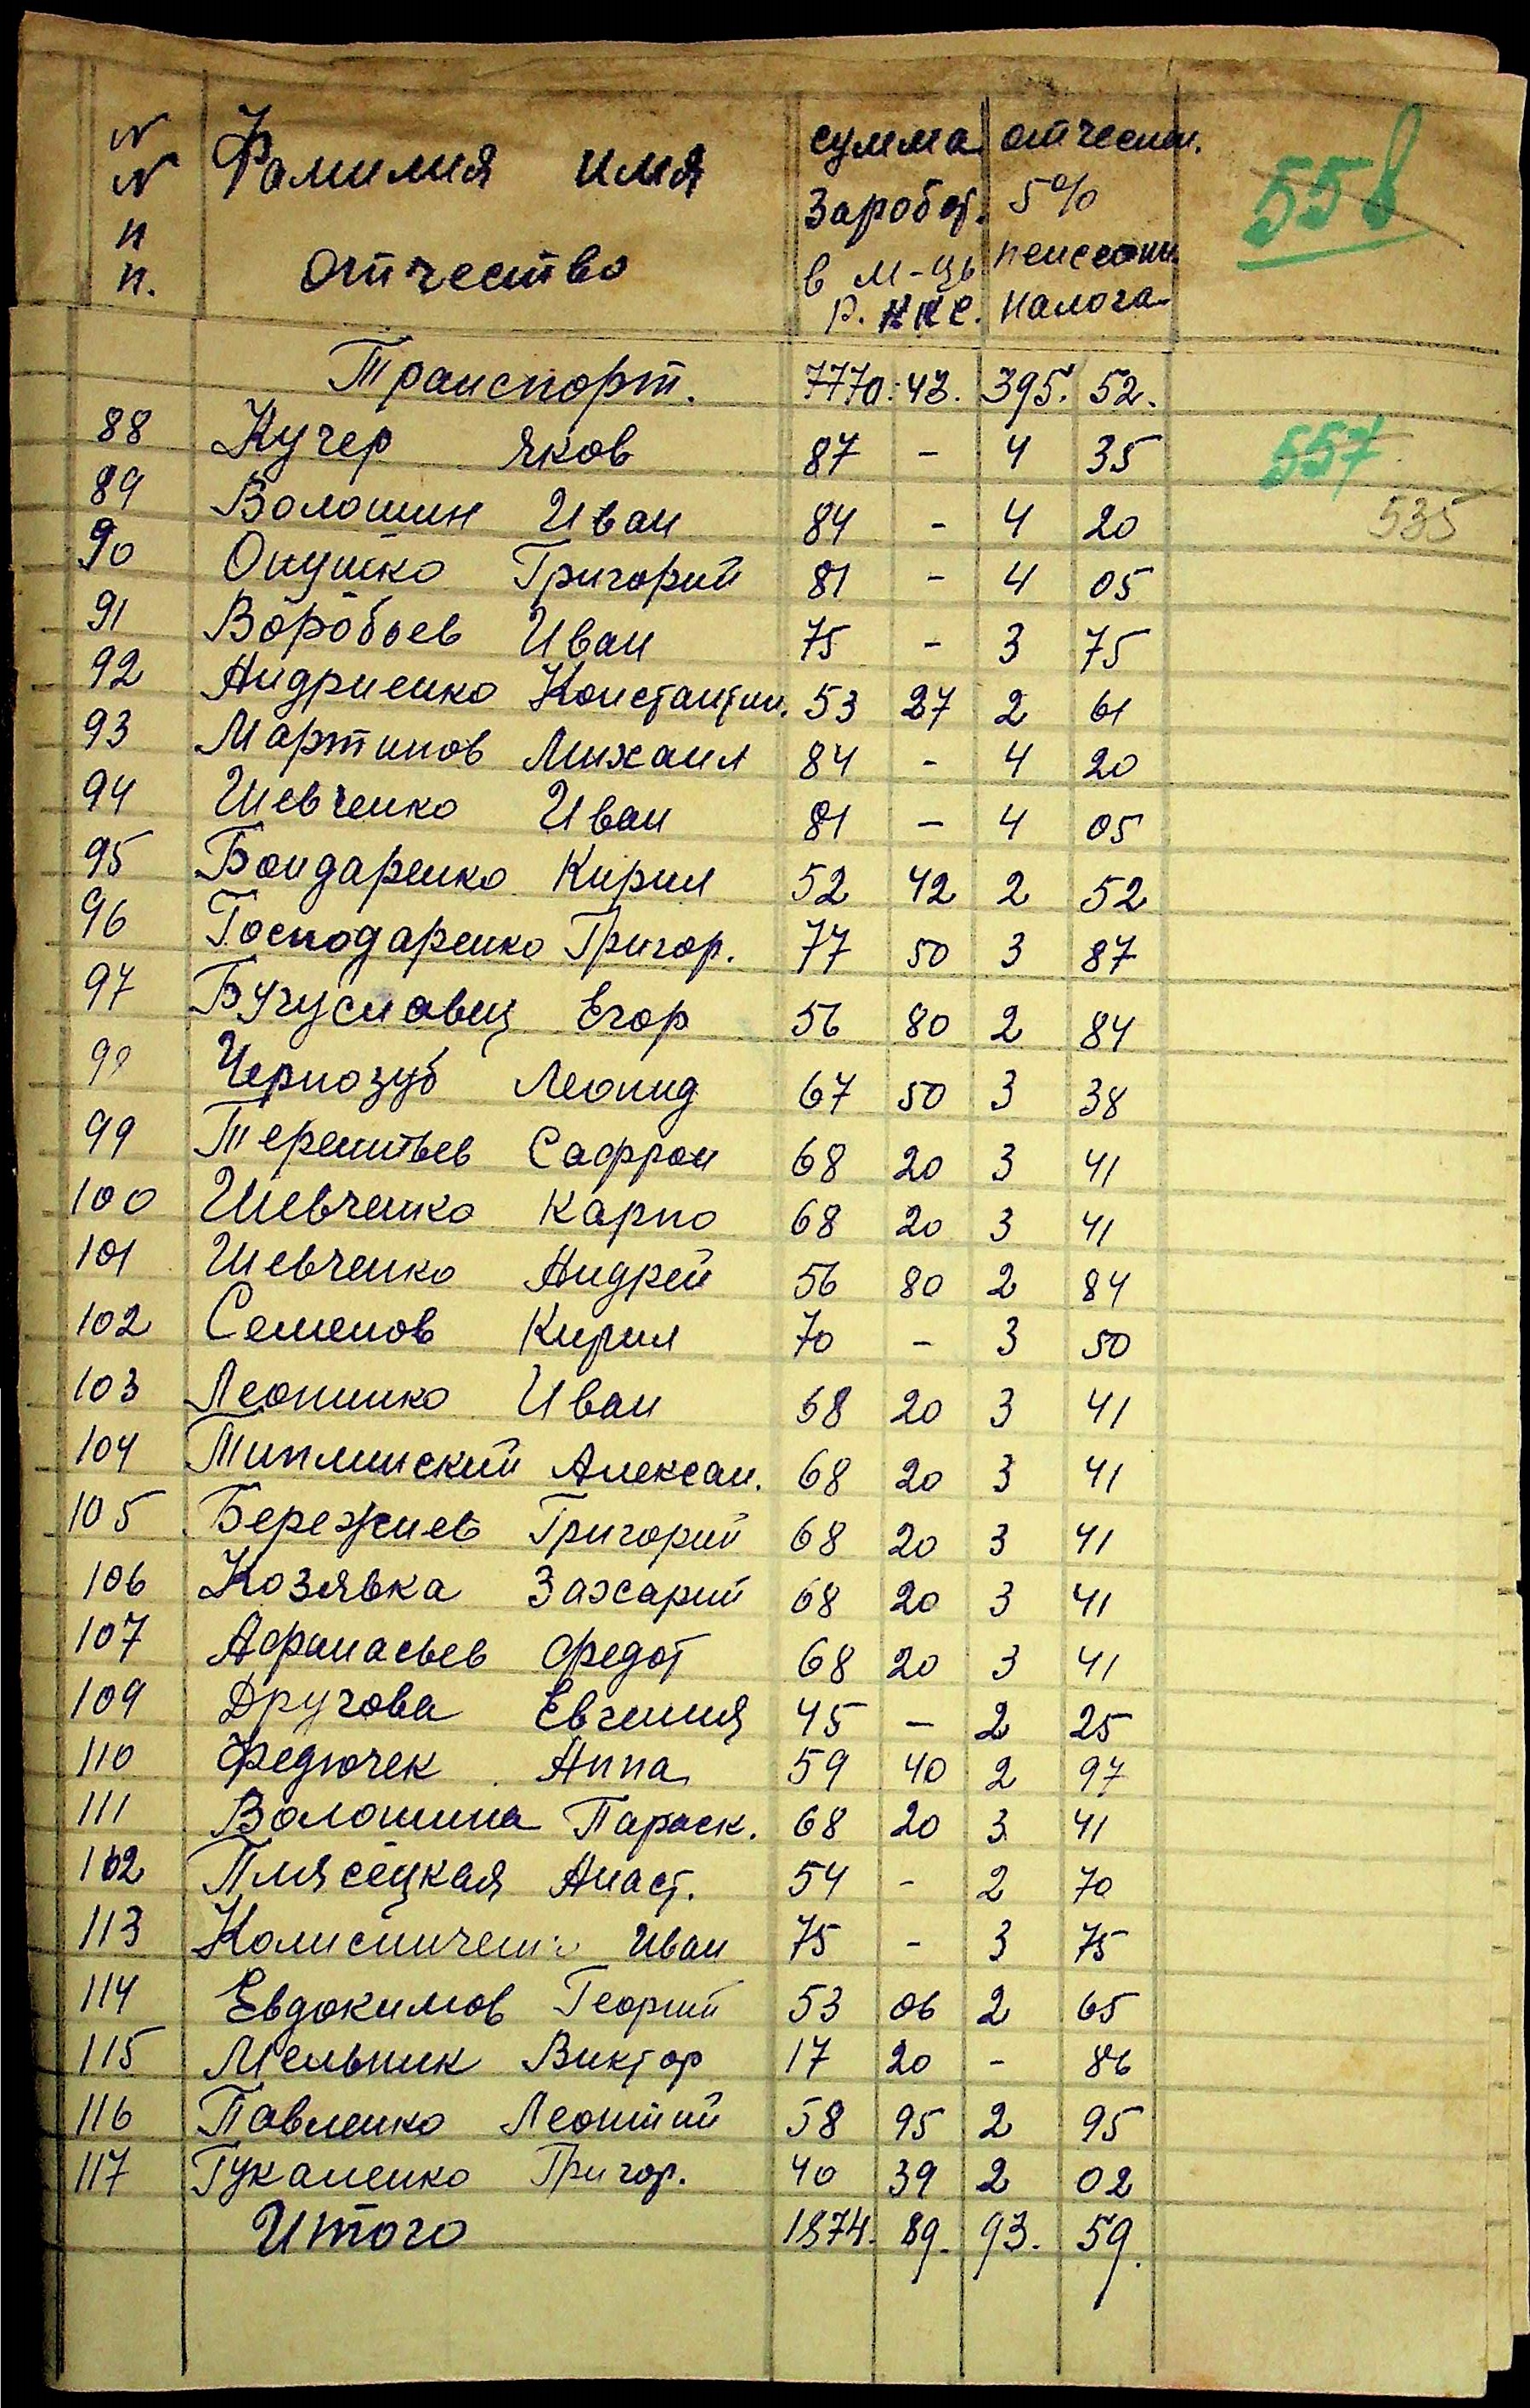 N Фамилия имя сумма отчеслен. 558
N Заробот. 5%
п отчество в м-ць пенссион.
п. р. кп с. налога
Транспорт. 7770. 43. 395. 52.
88 Кучер Яков 87 - 4 35 557
89 Волошин Иван 84 - 4 20 535
90 Опушко Григорий 81 - 4 05
91 Воробьев Иван 75 - 3 75
92 Андриенко Константин. 53 27 2 61
93 Мартинов Михаил 84 - 4 20
94 Шевченко Иван 81 - 4 05
95 Бондаренко Кирил 52 42 2 52
96 Господаренко Григор. 77 50 3 87
97 Бугуславец Егор 56 80 2 84
98 Чернозуб Леонид 67 50 3 38
99 Терентьев Сафрон 68 20 3 41
100 Шевченко Карпо 68 20 3 41
101 Шевченко Андрей 56 80 2 84
102 Семенов Кирил 70 - 3 50
103 Леоненко Иван 68 20 3 41
104 Типлинский Алексан. 68 20 3 41
105 Бережнев Григорий 68 20 3 41
106 Козявка Захарий 68 20 3 41
107 Афанасьев Федот 68 20 3 41
109 Другова Евгения 45 - 2 25
110 Федючек Анна 59 40 2 97
111 Волошина Параск. 68 20 3 41
112 Плясецкая Анаст. 54 - 2 70
113 Колисниченко Иван 75 - 3 75
114 Евдокимов Георгий 53 06 2 65
115 Мельник Виктор 17 20 - 86
116 Павленко Леонтий 58 95 2 95
117 Гукаленко Григор. 40 39 2 02
Итого 1874. 89. 93. 59.